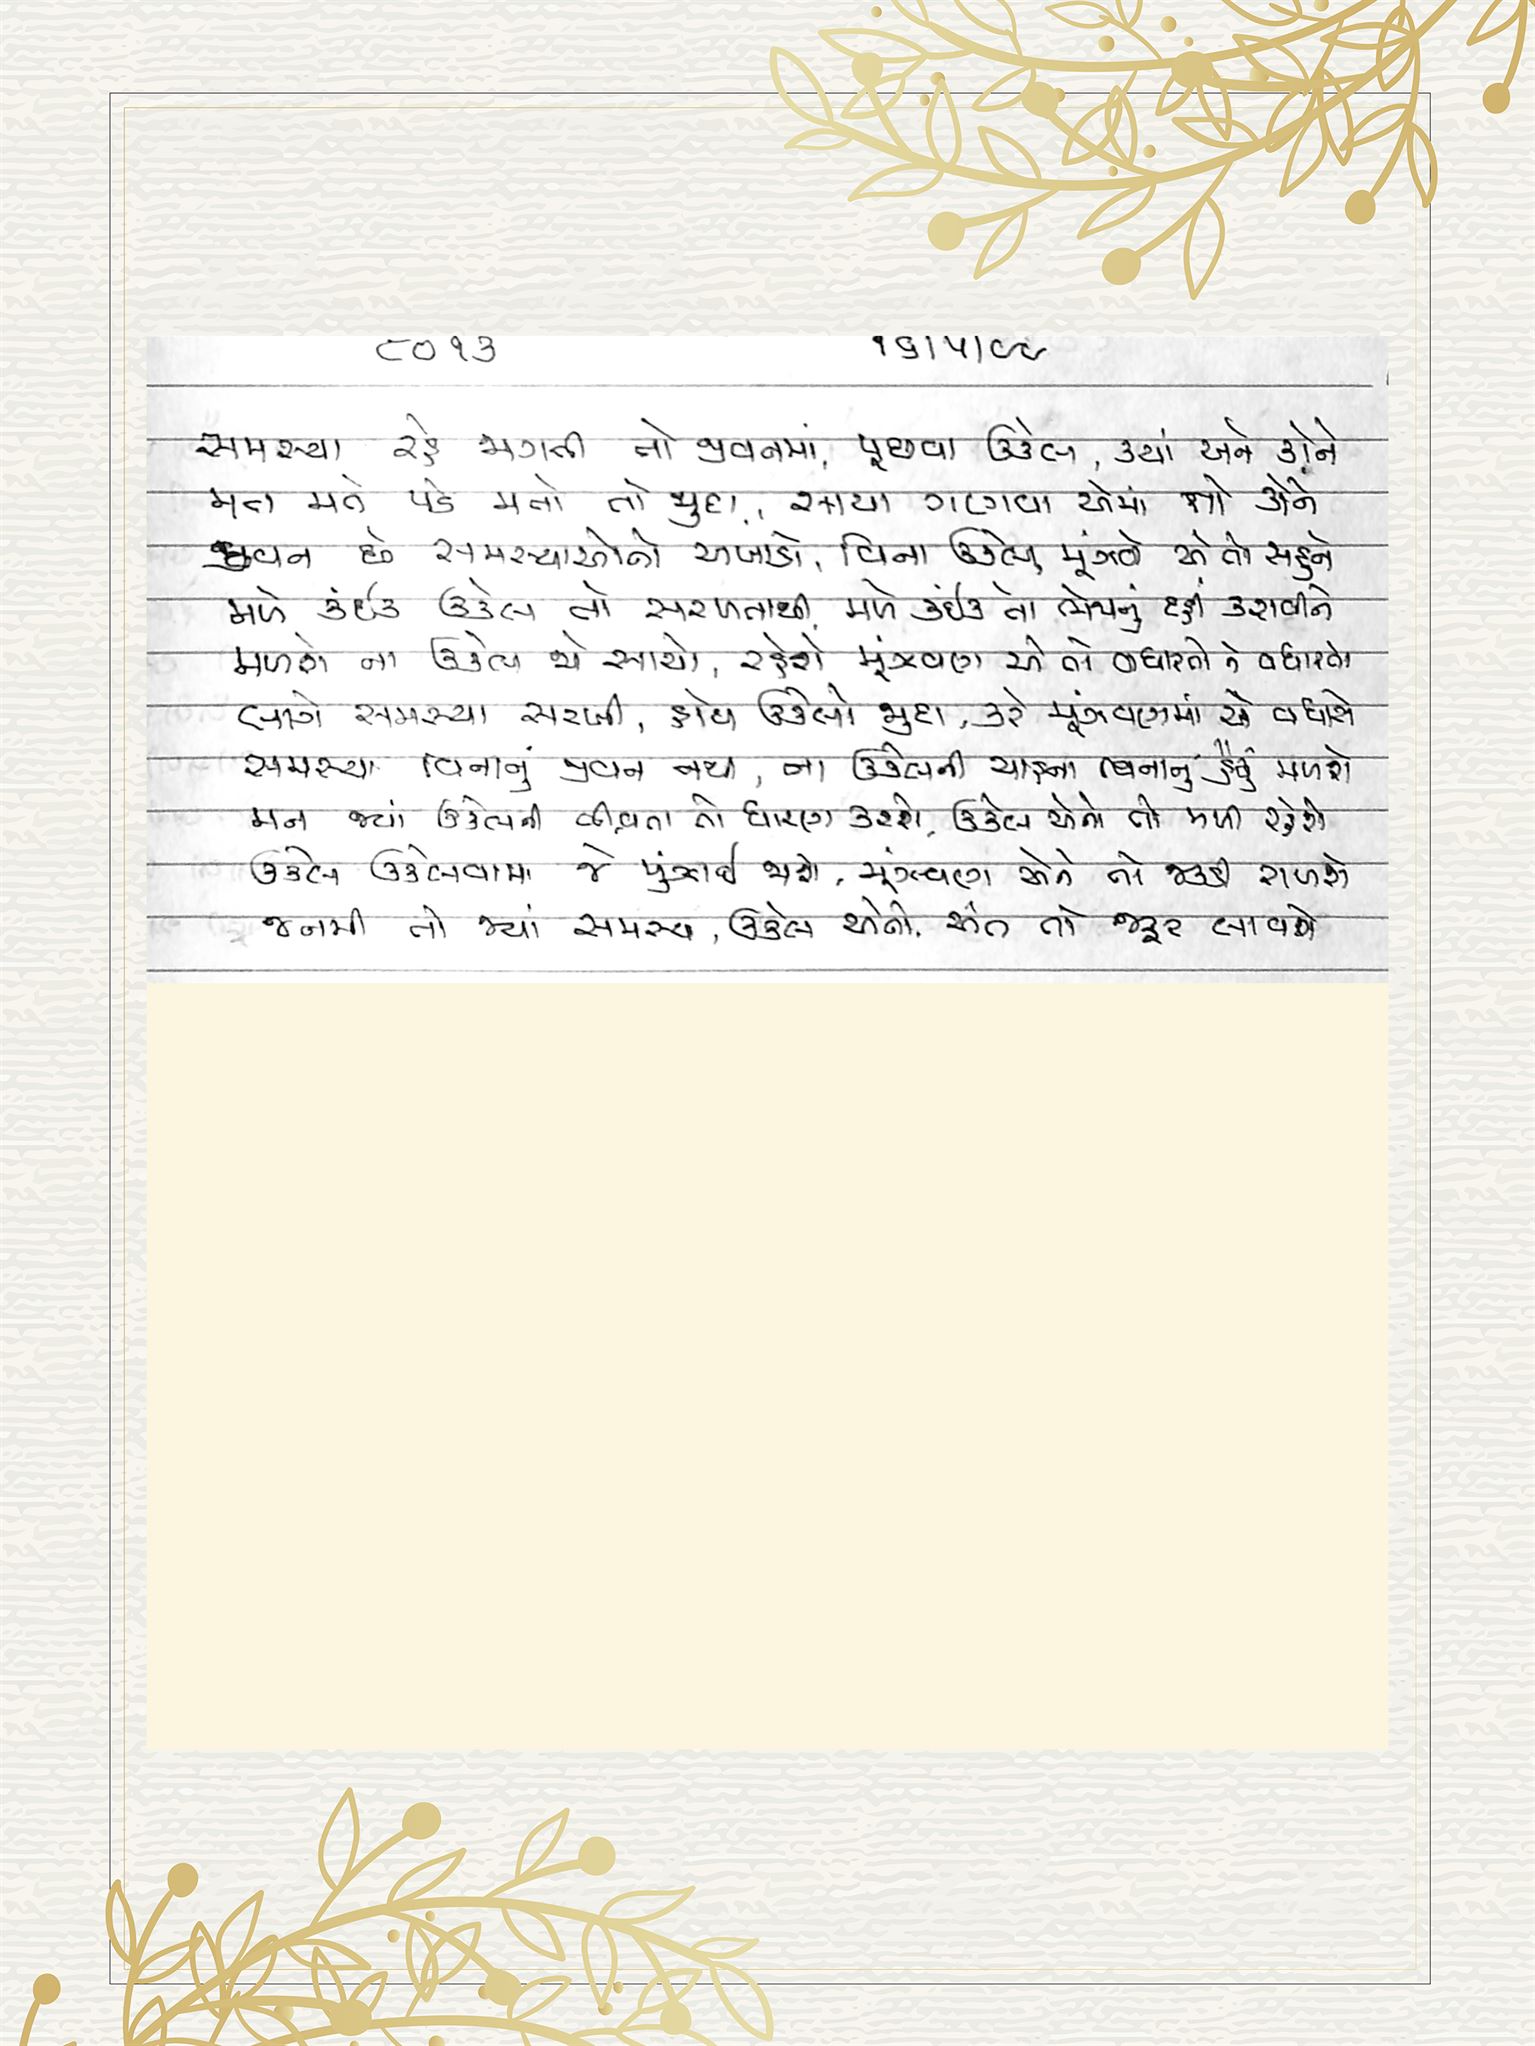 ૮૦૧૩ ૧૬/૫/૯૯
સમસ્યા રહે જાગતી તો જીવનમાં, પૂછવા ઉકેલ, ક્યાં અને કોને
મત મતે પડે મતો તો જુદા, સાચા ગણવા એમાં તો કોને
જીવન છે સમસ્યાઓનો અખાડો, વિના ઉકેલ મૂંઝવે એ તો સહુને
મળે કંઈક ઉકેલ તો સરળતાથી, મળે કંઈક તો લોચનું દહીં કરાવીને
મળશે ના ઉકેલ જો સાચો, રહેશે મૂંઝવણ એ તો વધારતો ને વધારતો
લાગે સમસ્યા સરખી, હોય ઉકેલો જુદા, કરે મૂંઝવણમાં એ વધારો
સમસ્યા વિનાનું જીવન નથી, ના ઉકેલની ચાહના વિનાનું હૈયું મળશે
મન જ્યાં ઉકેલની તીવ્રતા તો ધારણ કરશે, ઉકેલ એનો તો મળી રહેશે
ઉકેલ ઉકેલવામાં જે થાશે, મૂંઝવણ એને તો જકડી રાખશે
જનમી તો જ્યાં સમસ્યા, ઉકેલ એનો અંત તો જરૂર લાવશે